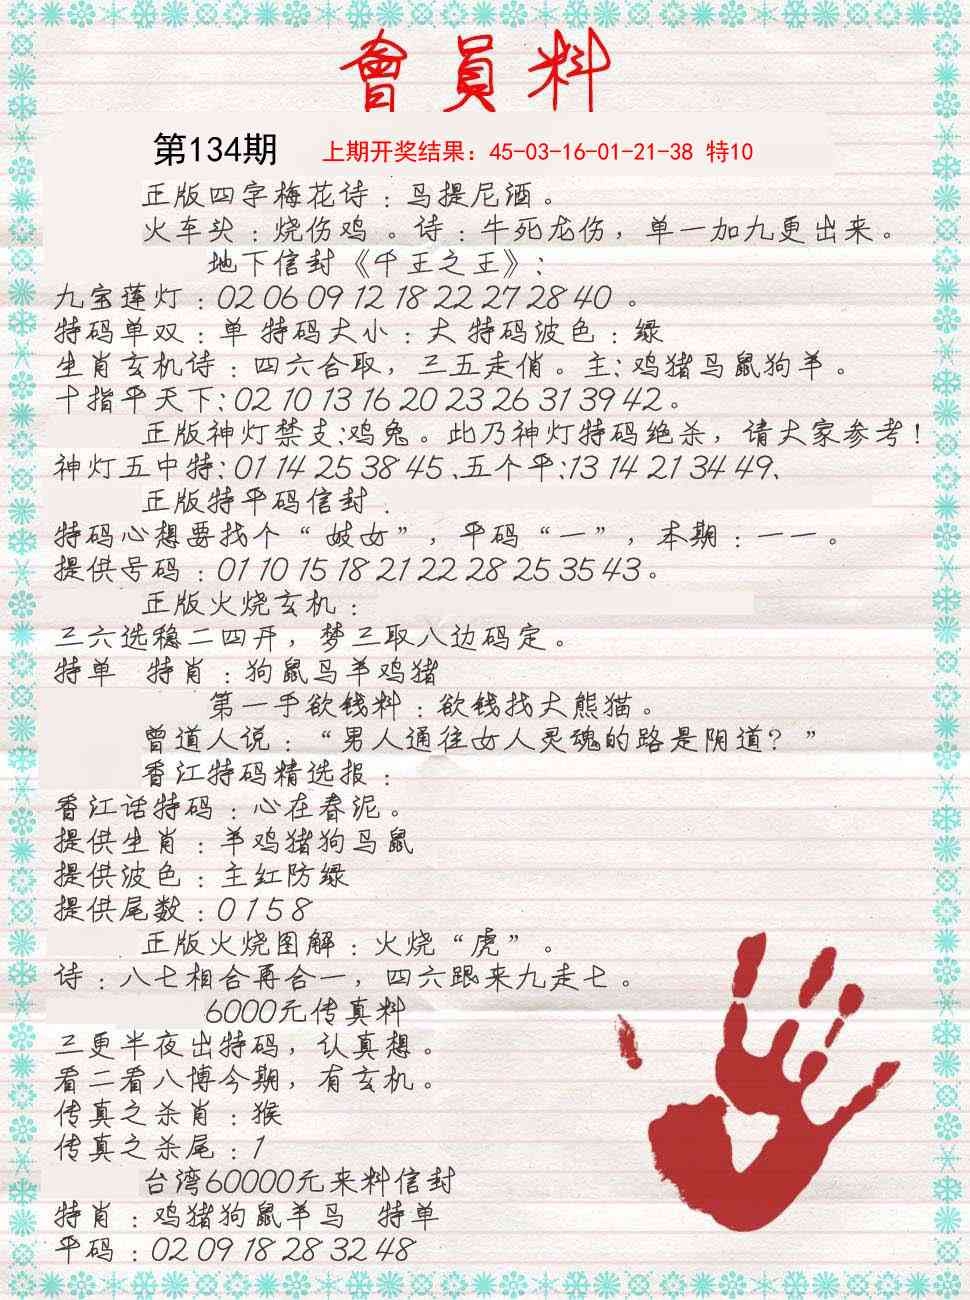 會員料
第134期 上期开奖结果：45-03-16-01-21-38 特10
正版四字梅花诗：鸟提尼酒。
火车头：烧伤鸡。诗：牛死龙伤，单一加九更出来。
地下信封《千王之王》：
九宝莲灯：02 06 09 12 18 22 27 28 40 。
特码单双：单 特码大小：大 特码波色：绿
生肖玄机诗：四六合取，三五走俏。主：鸡猪马鼠狗羊。
十指平天下：02 10 13 16 20 23 26 31 39 42。
正版神灯禁支：鸡兔。此乃神灯特码绝杀，请大家参考！
神灯五中特：01 14 25 38 45 、五个平：13 14 21 34 49、
正版特平码信封．
特码心想要找个“妓女”，平码“一”，本期：一一。
提供号码：01 10 15 18 21 22 28 25 35 43。
正版火烧玄机：
三六选稳二四开，梦三取八边码定。
特单 特肖：狗鼠马羊鸡猪
第一手欲钱料：欲钱找大熊猫。
曾道人说：“男人通往女人灵魂的路是阴道？”
香江特码精选报：
香江话特码：心在春泥。
提供生肖：羊鸡猪狗马鼠
提供波色：主红防绿
提供尾数：0 1 5 8
正版火烧图解：火烧“虎”。
诗：八七相合再合一，四六跟来九走七。
6000元传真料
三更半夜出特码，认真想。
看二看八博今期，有玄机。
传真之杀肖：猴
传真之杀尾：1
台湾60000元来料信封
特肖：鸡猪狗鼠羊马 特单
平码：02 09 18 28 32 48